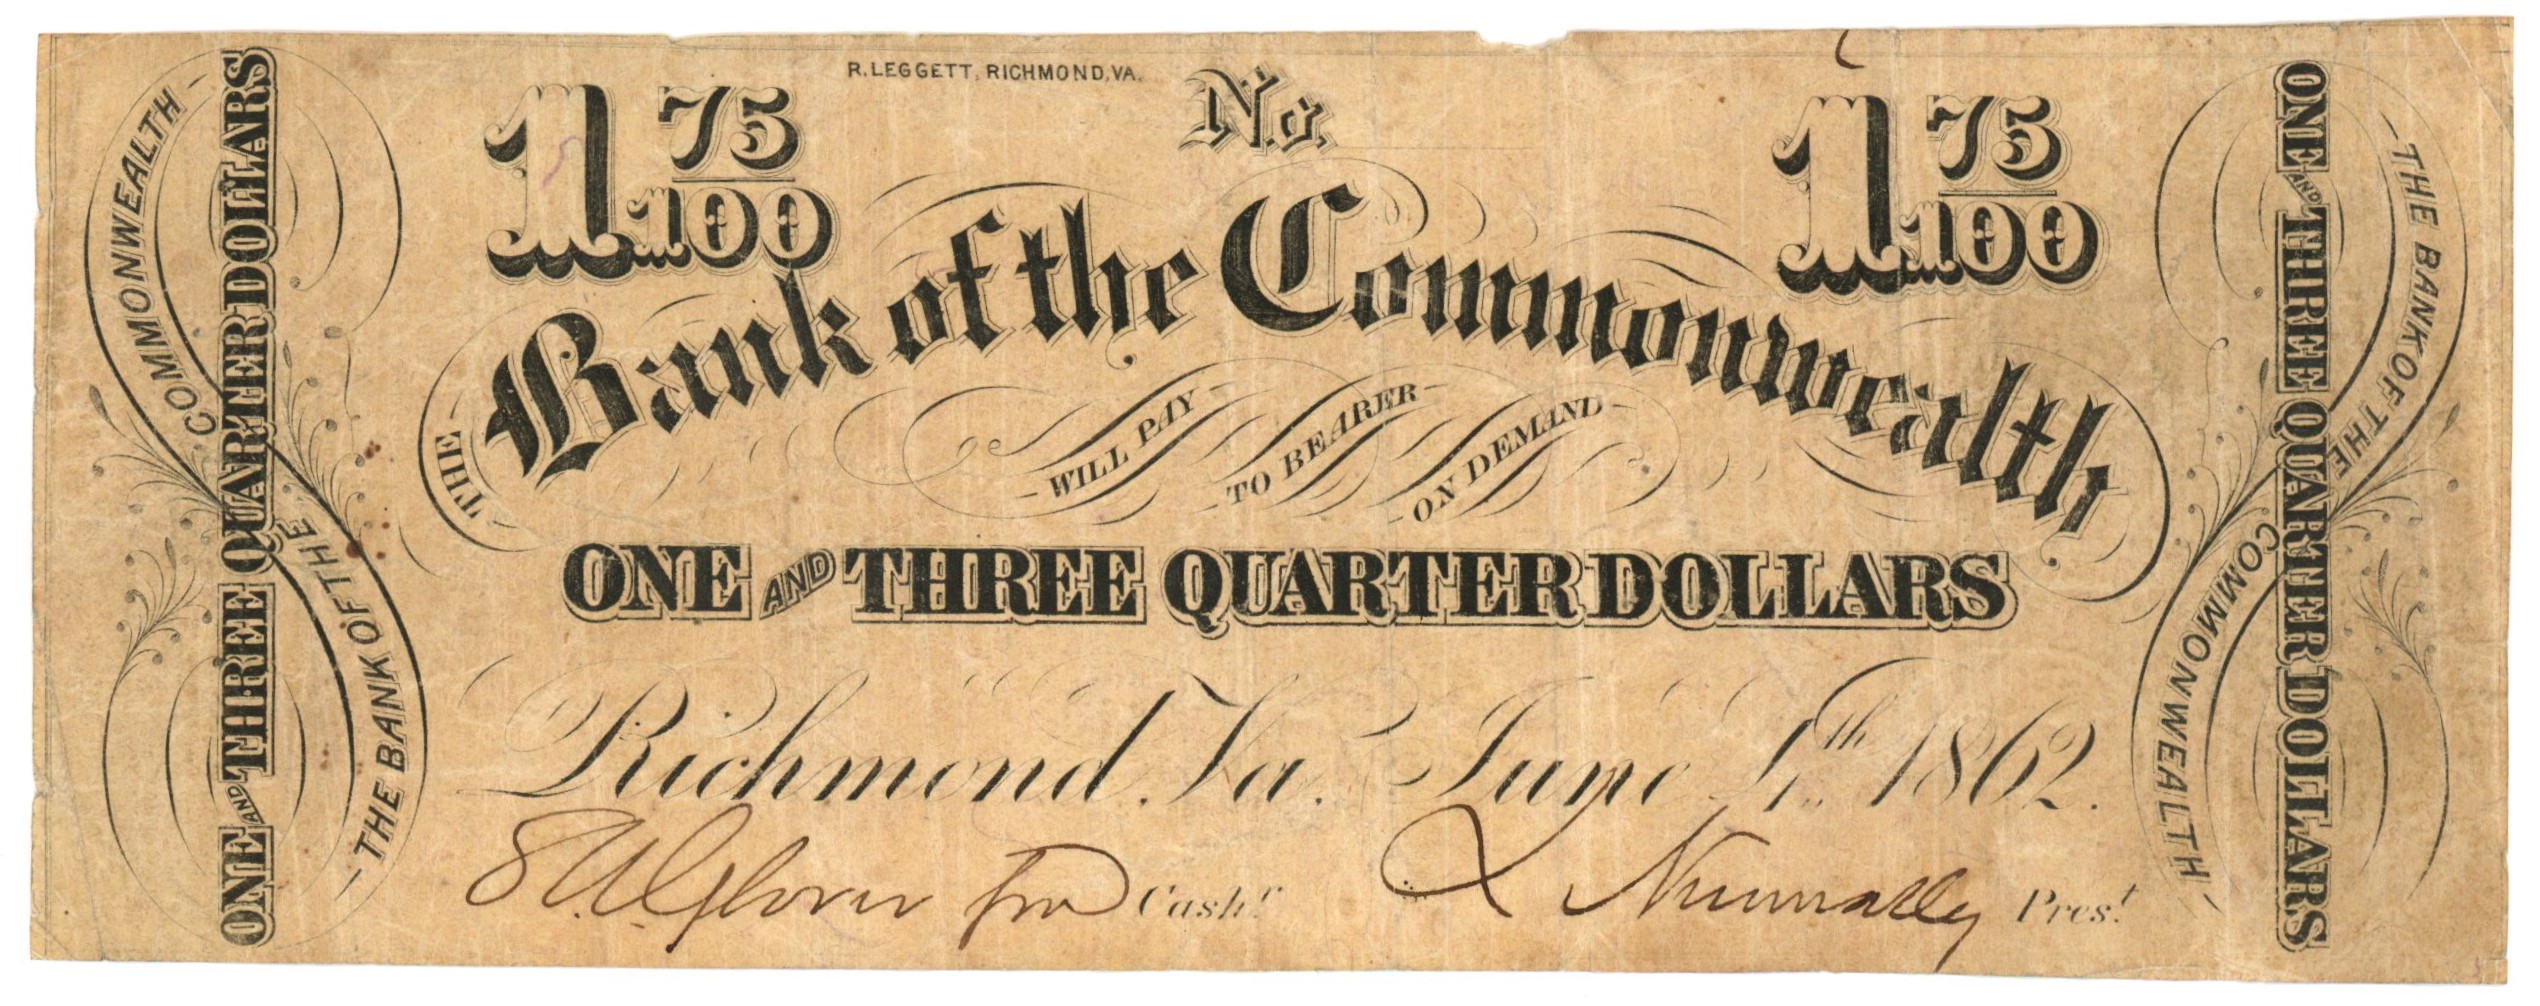 R. LEGGETT, RICHMOND, VA.
No.
1 75/100
1 75/100
THE Bank of the Commonwealth
WILL PAY TO BEARER ON DEMAND
ONE AND THREE QUARTER DOLLARS
Richmond, Va. June 1th 1862.
Cashr
Nunnally Prest
ONE AND THREE QUARTER DOLLARS
THE BANK OF THE COMMONWEALTH
ONE AND THREE QUARTER DOLLARS
THE BANK OF THE COMMONWEALTH